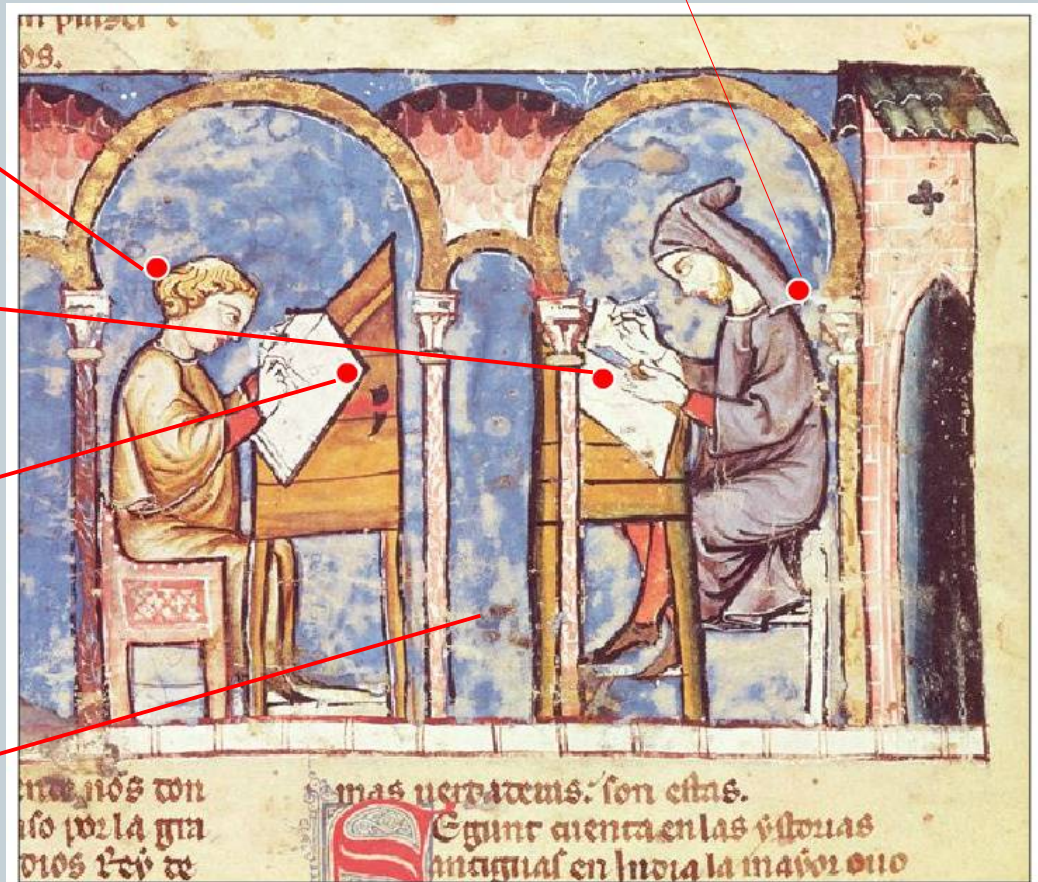 plazer
os.
nos don
so por la gra
dios Rey de
mas uerdaderas: son estas.
Segunt cuenta en las ystorias
antiguas en India la mayor ouo